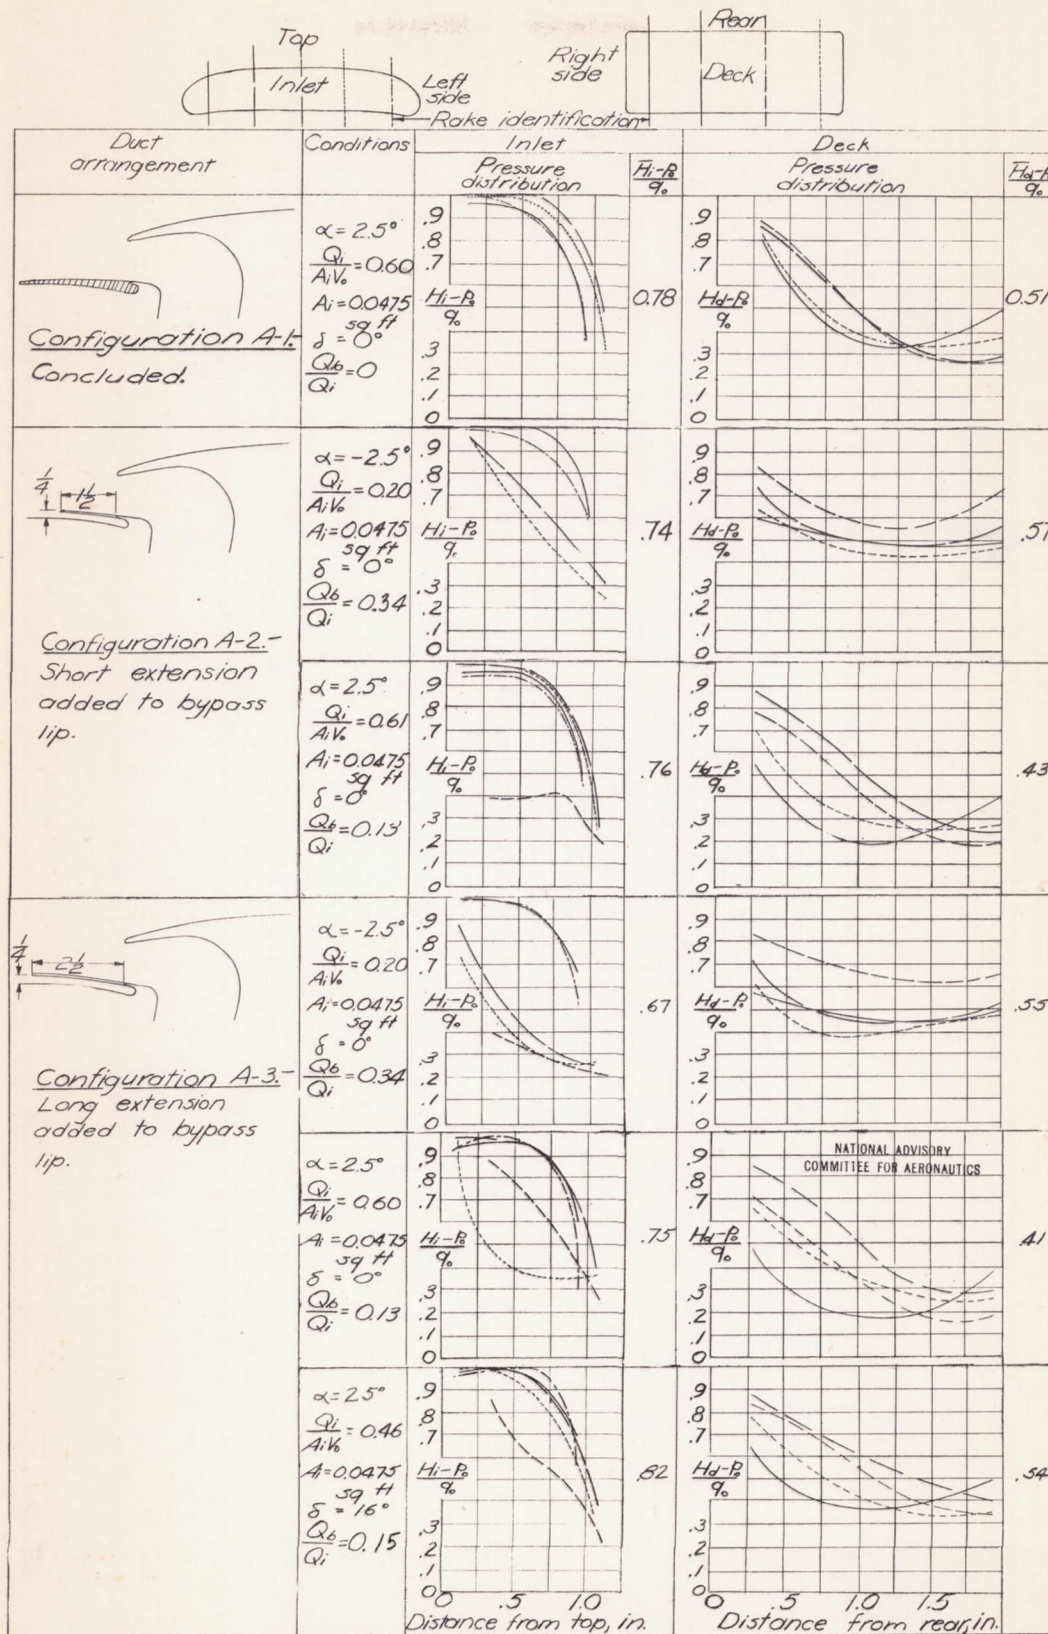 Top
Inlet
Left side
Rake identification
Right side
Rear
Deck
Duct arrangement
Conditions
Inlet
Deck
Pressure distribution
H̅i-P₀/q₀
Pressure distribution
H̅d-P₀/q₀
Configuration A-1.-
Concluded.
α = 2.5°
Qi/AiV₀ = 0.60
Ai = 0.0475 sq ft
δ = 0°
Qb/Qi = 0
.9
.8
.7
Hi-P₀/q₀
.3
.2
.1
0
0.78
.9
.8
.7
Hd-P₀/q₀
.3
.2
.1
0
0.51
1/4
1 1/2
Configuration A-2.-
Short extension
added to bypass
lip.
α = -2.5°
Qi/AiV₀ = 0.20
Ai = 0.0475 sq ft
δ = 0°
Qb/Qi = 0.34
.9
.8
.7
Hi-P₀/q₀
.3
.2
.1
0
.74
.9
.8
.7
Hd-P₀/q₀
.3
.2
.1
0
.57
α = 2.5°
Qi/AiV₀ = 0.61
Ai = 0.0475 sq ft
δ = 0°
Qb/Qi = 0.13
.9
.8
.7
Hi-P₀/q₀
.3
.2
.1
0
.76
.9
.8
.7
Hd-P₀/q₀
.3
.2
.1
0
.43
1/4
2 1/2
Configuration A-3.-
Long extension
added to bypass
lip.
α = -2.5°
Qi/AiV₀ = 0.20
Ai = 0.0475 sq ft
δ = 0°
Qb/Qi = 0.34
.9
.8
.7
Hi-P₀/q₀
.3
.2
.1
0
.67
.9
.8
.7
Hd-P₀/q₀
.3
.2
.1
0
.55
α = 2.5°
Qi/AiV₀ = 0.60
Ai = 0.0475 sq ft
δ = 0°
Qb/Qi = 0.13
.9
.8
.7
Hi-P₀/q₀
.3
.2
.1
0
.75
NATIONAL ADVISORY
COMMITTEE FOR AERONAUTICS
.9
.8
.7
Hd-P₀/q₀
.3
.2
.1
0
.41
α = 2.5°
Qi/AiV₀ = 0.46
Ai = 0.0475 sq ft
δ = 16°
Qb/Qi = 0.15
.9
.8
.7
Hi-P₀/q₀
.3
.2
.1
0
.82
.9
.8
.7
Hd-P₀/q₀
.3
.2
.1
0
.54
0 .5 1.0
0 .5 1.0 1.5
Distance from top, in.
Distance from rear, in.